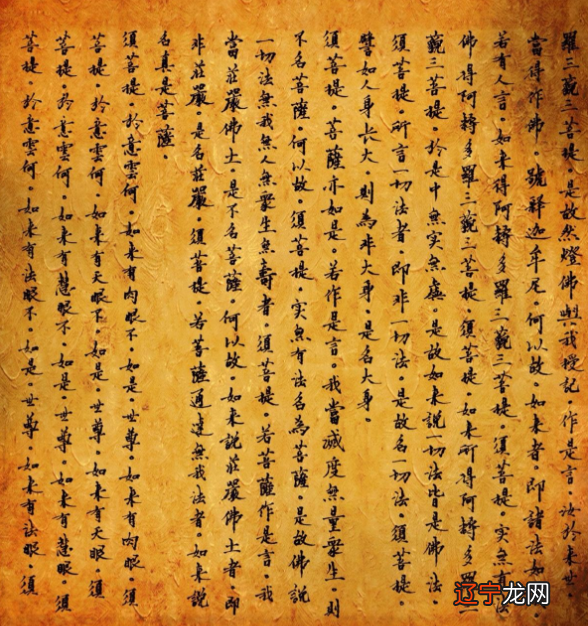 羅三藐三菩提。是故然燈佛與我授記。作是言。汝於來世。
當得作佛。號釋迦牟尼。何以故。如來者。即諸法如
若有人言。如來得阿耨多羅三藐三菩提。須菩提。實無有
佛得阿耨多羅三藐三菩提。須菩提。如來所得阿耨多羅三
藐三菩提。於是中無實無虛。是故如來說一切法皆是佛法。
須菩提。所言一切法者。即非一切法。是故名一切法。須菩提。
譬如人身長大。則為非大身。是名大身。
須菩提。菩薩亦如是。若作是言。我當滅度無量眾生。則
不名菩薩。何以故。須菩提。實無有法名為菩薩。是故佛說
一切法無我無人無眾生無壽者。須菩提。若菩薩作是言。我
當莊嚴佛土。是不名菩薩。何以故。如來說莊嚴佛土者。即
非莊嚴。是名莊嚴。須菩提。若菩薩通達無我法者。如來說
名真是菩薩。
須菩提。於意雲何。如來有肉眼不。如是。世尊。如來有肉眼。須
菩提。於意雲何。如來有天眼不。如是。世尊。如來有天眼。須
菩提。於意雲何。如來有慧眼不。如是。世尊。如來有慧眼。須
菩提。於意雲何。如來有法眼不。如是。世尊。如來有法眼。須
辽宁龙网